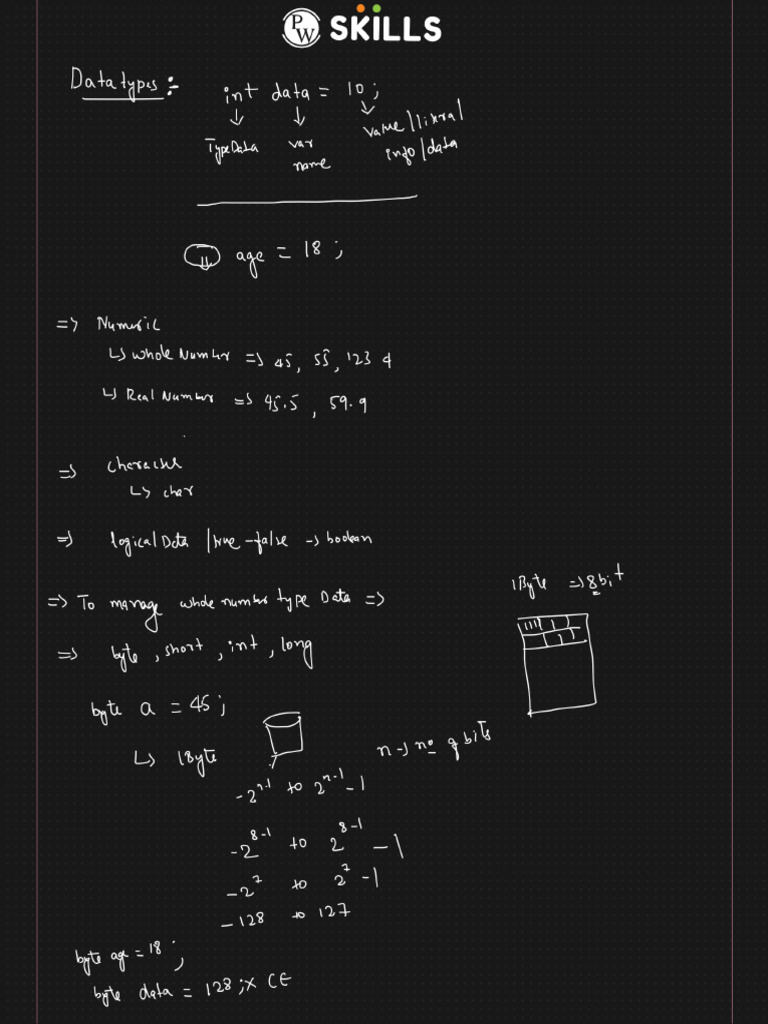 PW SKILLS
Datatypes :-
int data = 10 ;
TypeData
var name
value / literal
info / data
age = 18 ;
=> Numeric
↳ whole Number => 45, 55, 123 4
↳ Real Number => 45.5 , 59.9
=> character
↳ char
=> logical Data / true - false -> boolean
1Byte => 8bit
=> To manage whole number type Data =>
=> byte , short , int , long
byte a = 45 ;
↳ 1Byte
n -> no of bits
-2^n-1 to 2^n-1 -1
-2^8-1 to 2^8-1 -1
-2^7 to 2^7 -1
-128 to 127
byte age = 18 ;
byte data = 128 ; x CE